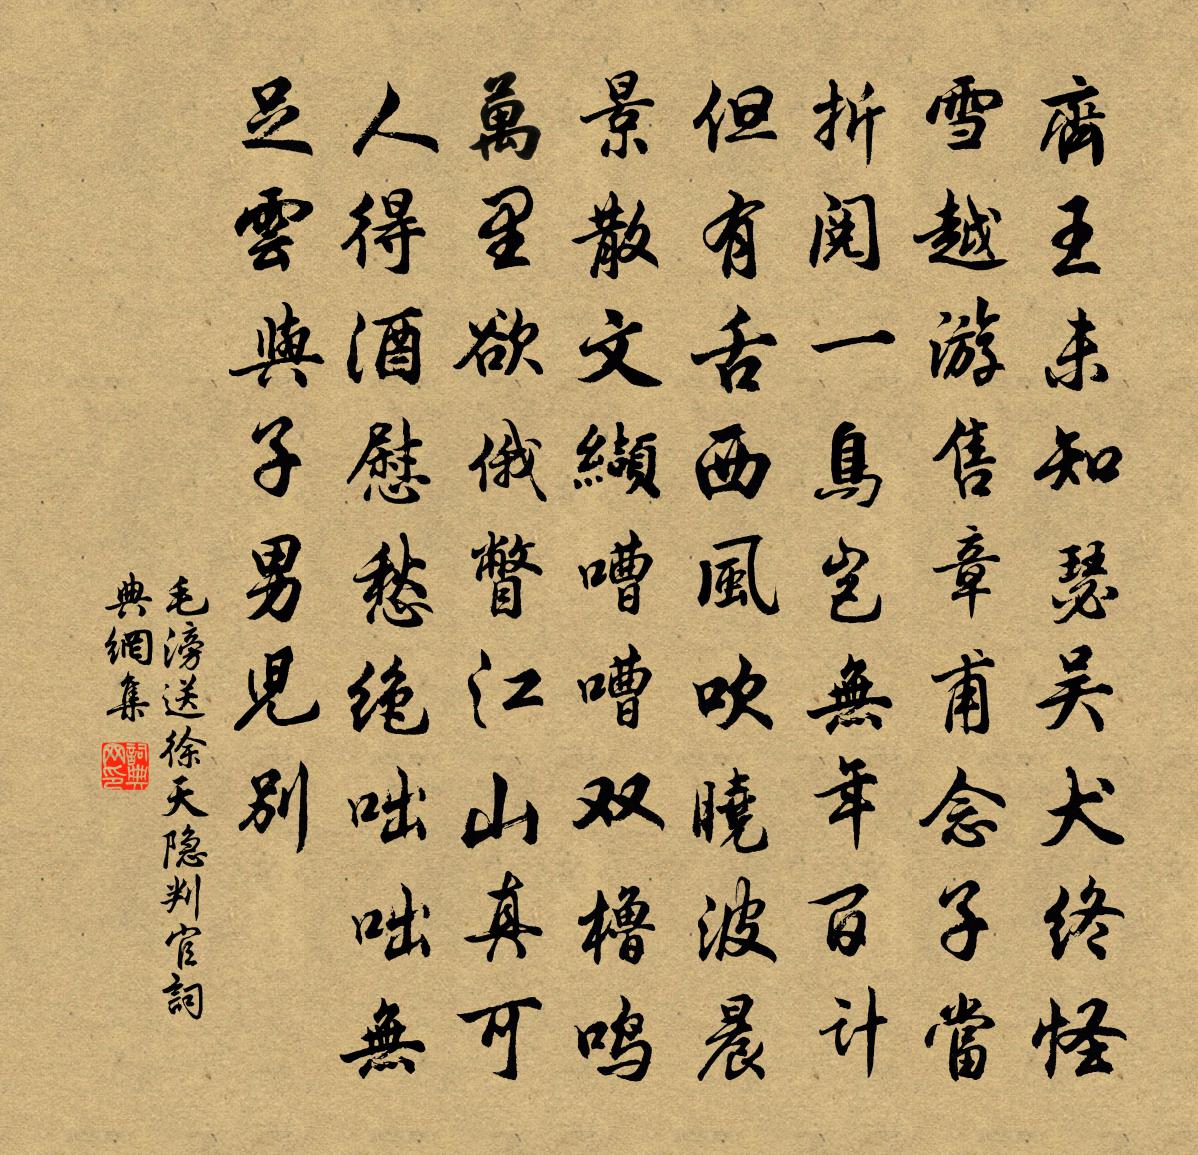 齊王未知瑟吴犬终怪
雪越游售章甫念子當
折阅一鳥岂無年百计
但有舌西風吹曉波晨
景散文纈嘈嘈双櫓鸣
萬里欲俄瞥江山真可
人得酒慰愁绝咄咄無
足雲與子男児别
毛滂送徐天隐判官詞
典網集
詞典网印